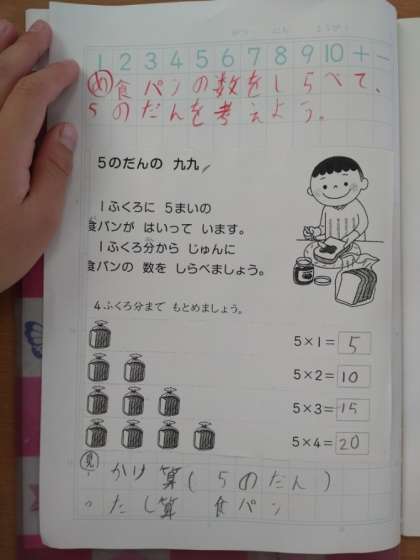 1 2 3 4 5 6 7 8 9 10 + −
め 食パンの数をしらべて、
5のだんを考えよう。
5のだんの 九九
1ふくろに 5まいの
食パンが はいって います。
1ふくろ分から じゅんに
食パンの 数を しらべましょう。
4ふくろ分まで もとめましょう。
5×1= 5
5×2= 10
5×3= 15
5×4= 20
見
かけ算(5のだん)
たし算 食パン